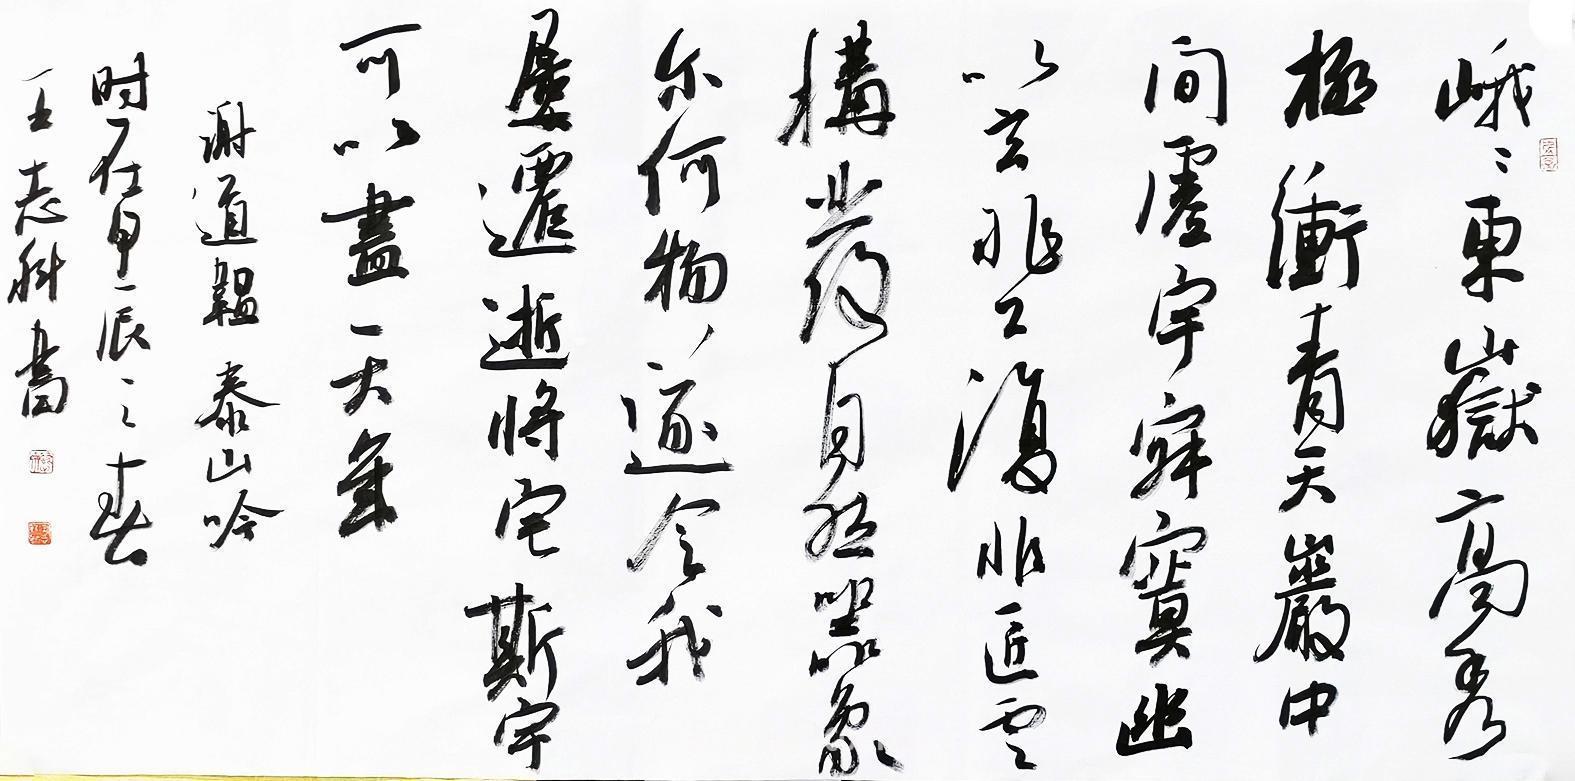 峨々東嶽高秀
極衝青天巖中
间虛宇寂寞幽
以玄非工復非匠雲
構發自然器象
尔何物遂令我
屢遷逝將宅斯宇
可以盡天年
謝道韞 泰山吟
时在甲辰之春
王志科書